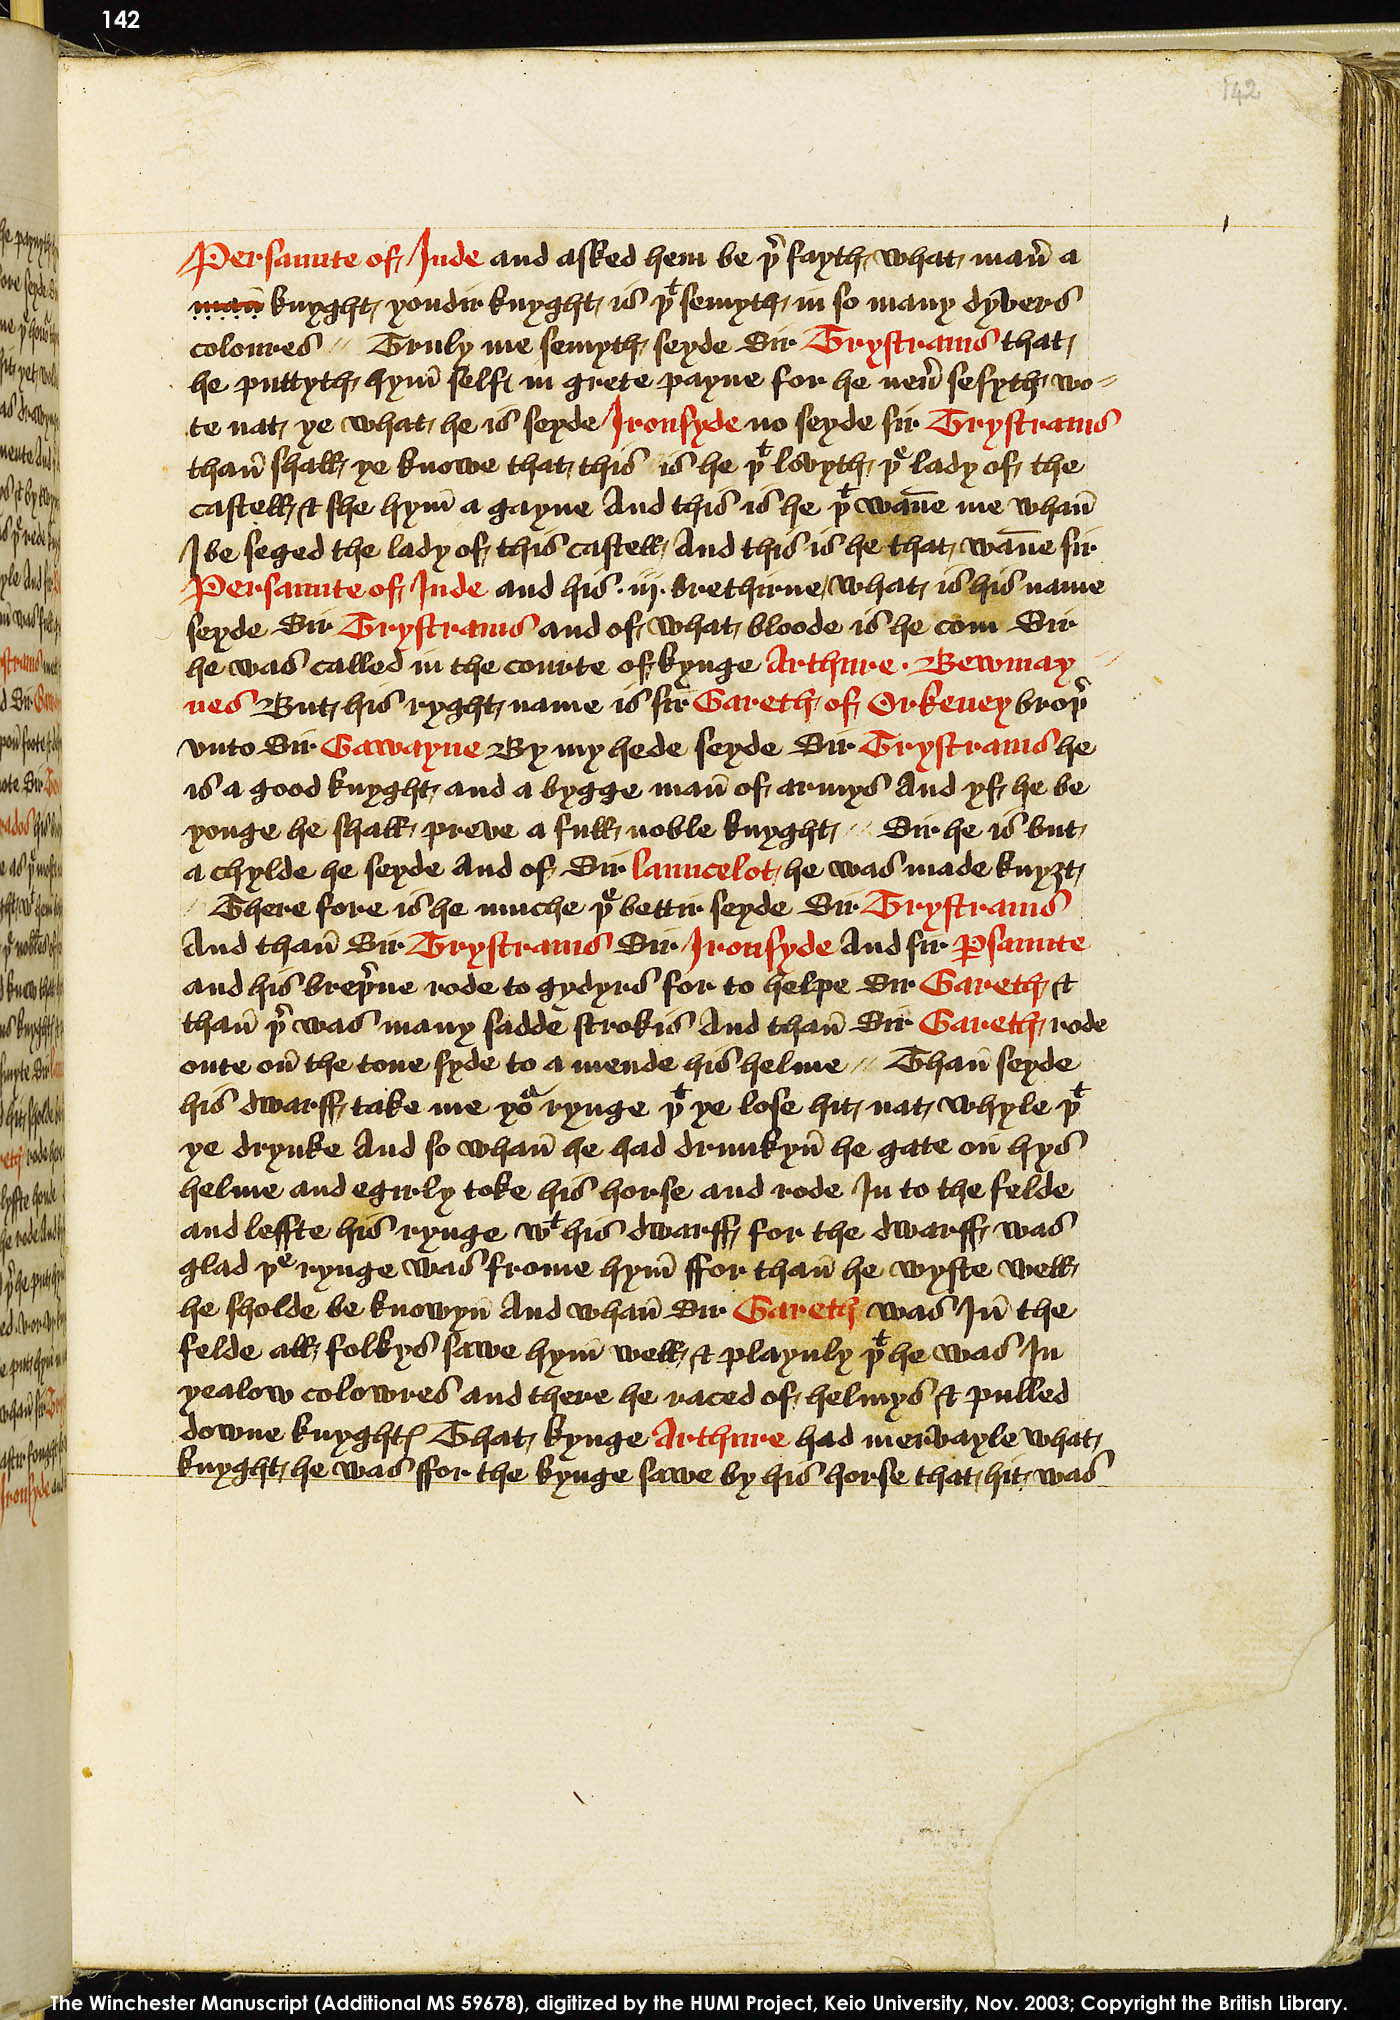 142
142
Persaunte of Inde and asked hem be þr̄ fayth what man̄ a
man̄ knyght yondir knyght is þt semyth in so many dyvers
coloures // Truly me semyth seyde Sir Trystrams that
he puttyth hym̄ self in grete payne for he neū sesyth wo=
te nat ye what he is seyde Ironsyde no seyde sir Trystrams
than̄ shall ye knowe that this is he þt lovyth þe lady of the
castell & she hym̄ a gayne And this is he þt wan̄e me whan̄
I be seged the lady of this castell And this is he that wan̄e sir
Persaunte of Inde and his .iij. brethirne / what is his name
seyde Sir Trystrams and of what bloode is he com Sir
he was called in the courte of kynge Arthure . Bewmay //
nes But his ryght name is sir Gareth of Orkeney broþr̄
vnto Sir Gawayne By my hede seyde Sir Trystrams he
is a good knyght and a bygge man̄ of armys And yf he be
yonge he shall preve a full noble knyght // Sir he is but
a chylde he seyde And of Sir launcelot he was made knyȝt
// There fore is he muche þe bettir seyde Sir Trystrams
And than̄ Sir Trystrams Sir Ironsyde And sir Psaunte
and his breþr̄ne rode to gydyrs for to helpe Sir Gareth &
than̄ þr̄ was many sadde strokis And than̄ Sir Gareth rode
oute on̄ the tone syde to a mende his helme // Than̄ seyde
his dwarff take me yor rynge þt ye lose hit nat whyle þt
ye drynke And so whan̄ he had drunkyn̄ he gate on̄ hys
helme and egirly toke his horse and rode In to the felde
and leffte his rynge wt his dwarff for the dwarff was
glad þe rynge was frome hym̄ ffor than̄ he wyste well
he sholde be knowyn̄ And whan̄ Sir Gareth was In̄ the
felde all folkys sawe hym̄ well & playnly þt he was In
yealow colowres and there he raced of helmys & pulled
downe knyghtꝭ That kynge Arthure had mervayle what
knyght he was ffor the kynge sawe by his horse that hit was
The Winchester Manuscript (Additional MS 59678), digitized by the HUMI Project, Keio University, Nov. 2003; Copyright the British Library.